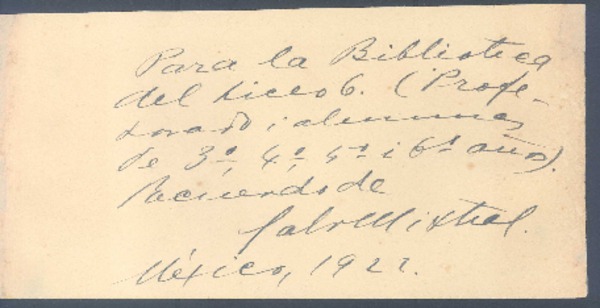 Para la Biblioteca
del Liceo 6. (Profe-
sorado i alumnas
de 3º, 4º, 5º i 6º años).
Recuerdo de
Gab. Mistral.
México, 1922.